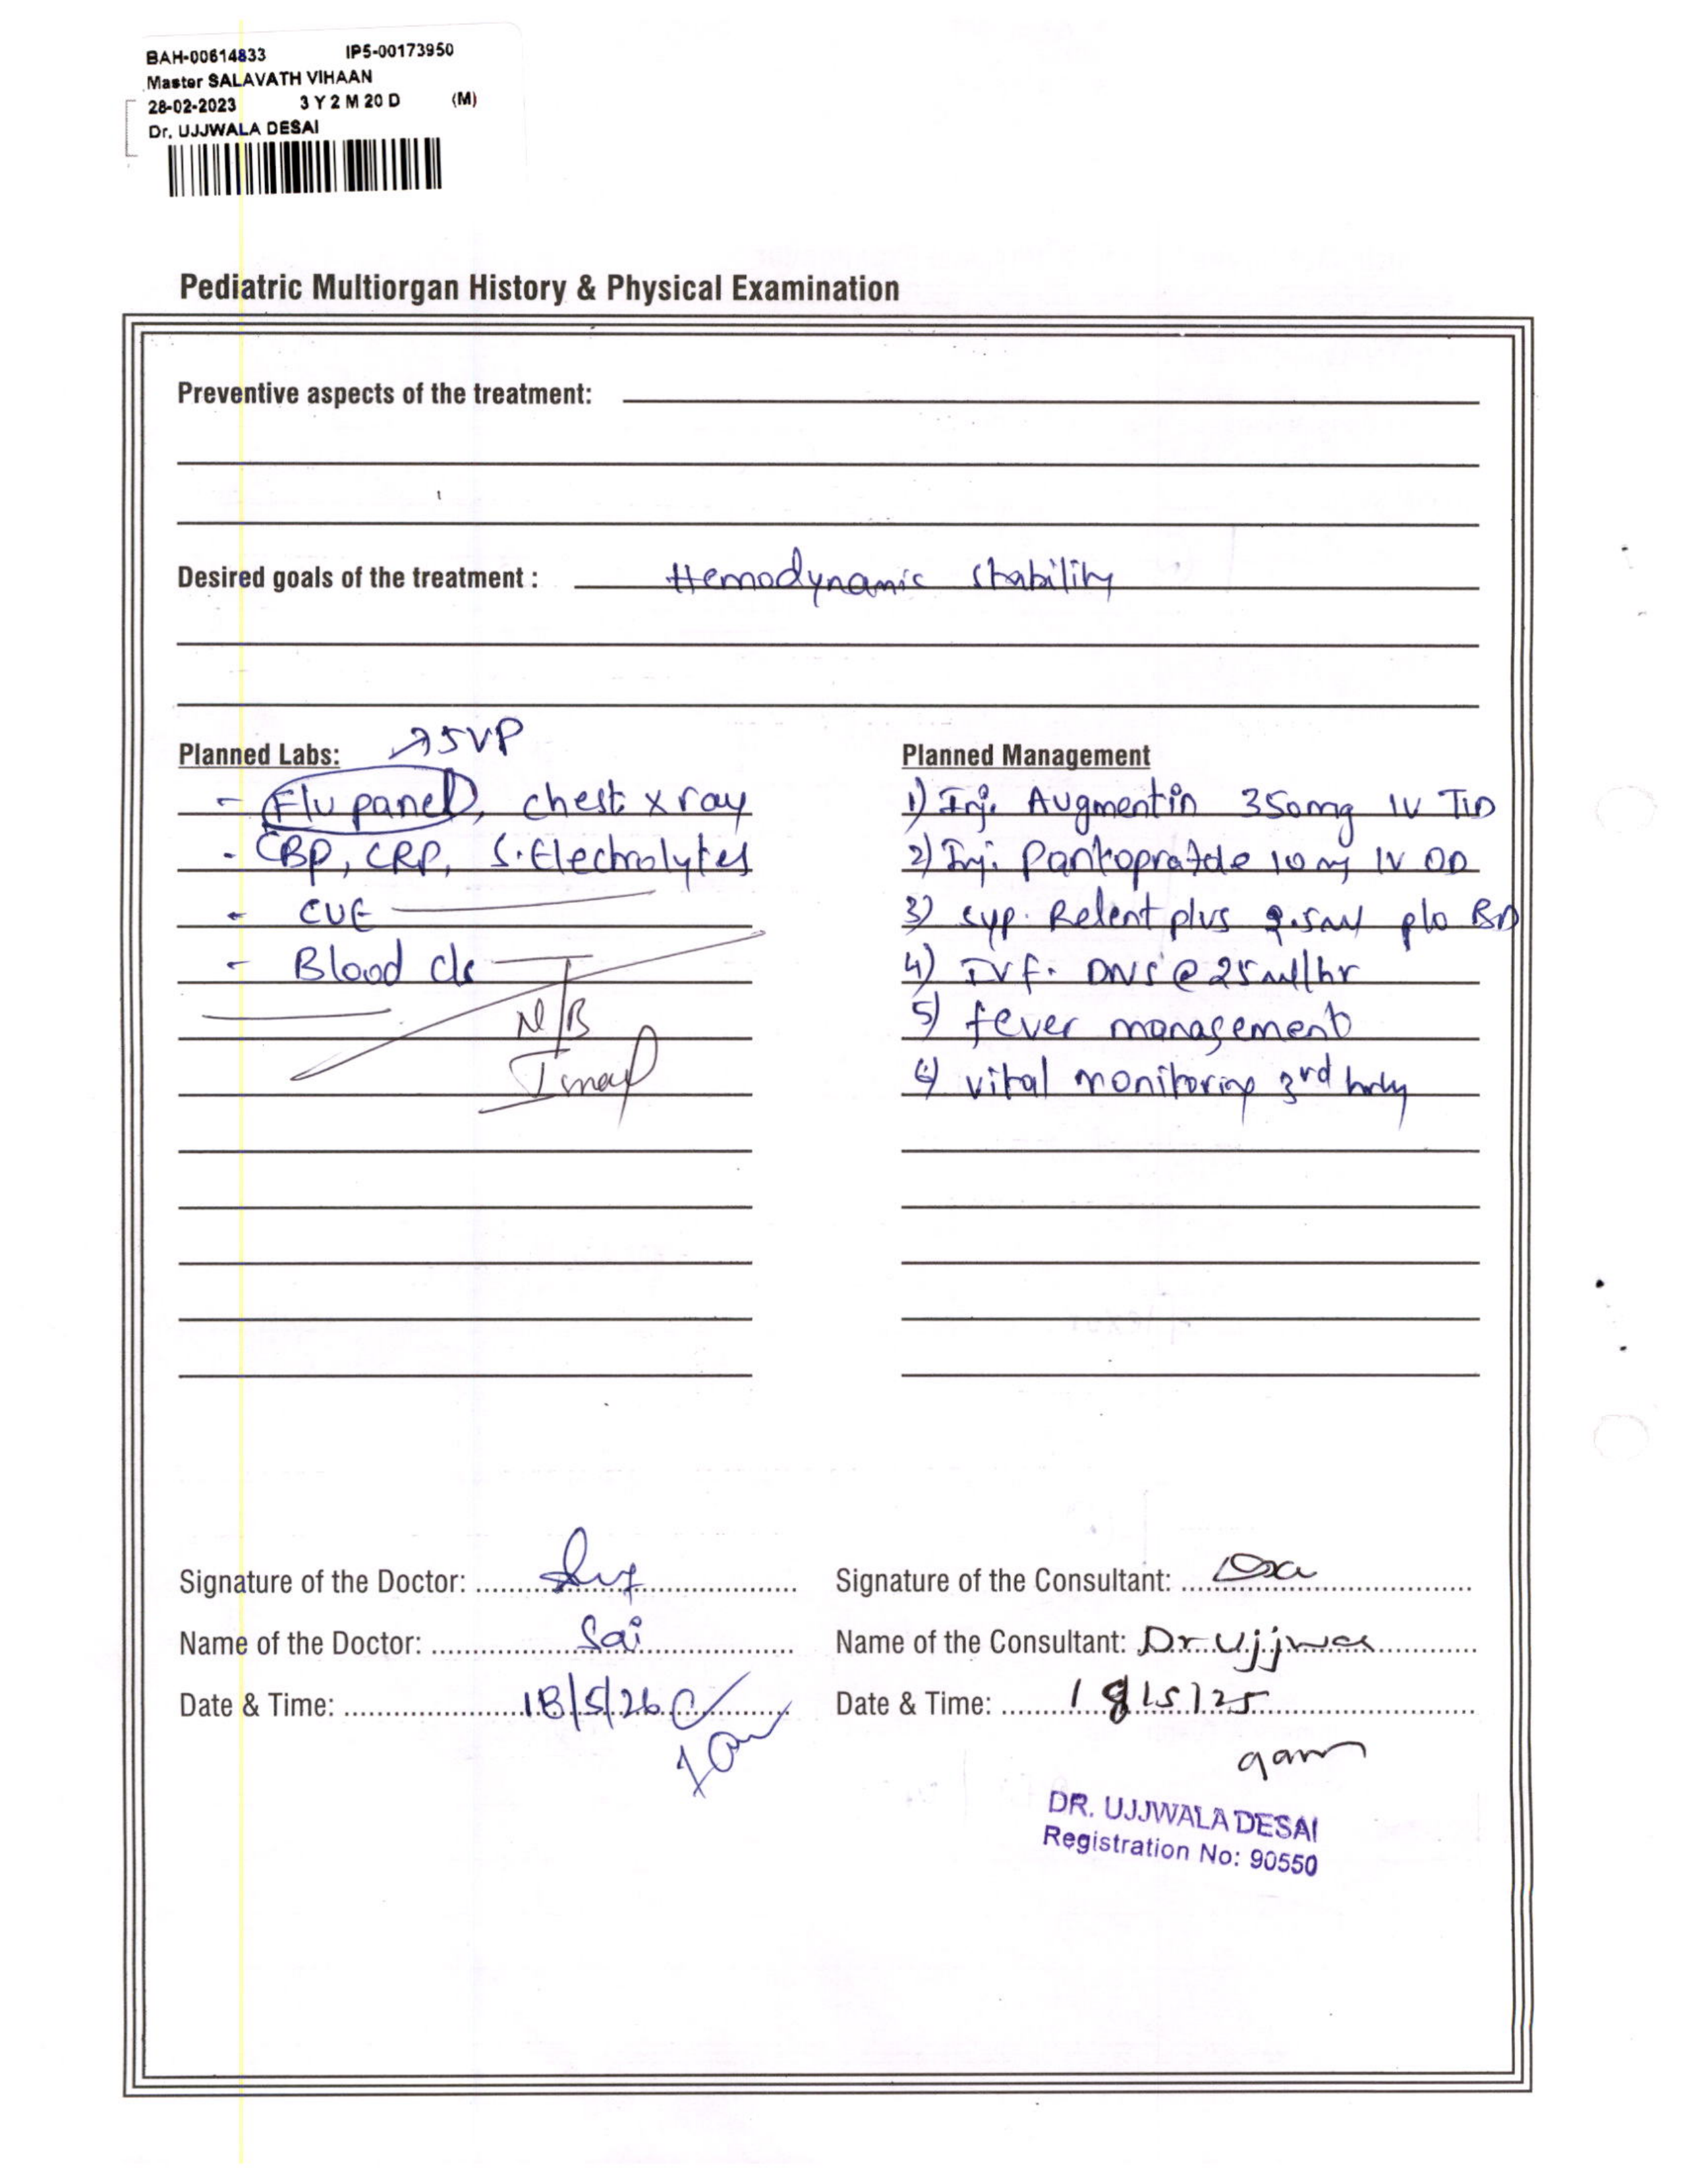 BAH-00614833 IP5-00173950
Master SALAVATH VIHAAN
28-02-2023 3 Y 2 M 20 D (M)
Dr. UJJWALA DESAI
Pediatric Multiorgan History & Physical Examination
Preventive aspects of the treatment:
Desired goals of the treatment : Hemodynamic stability
→ 5VP
Planned Labs:
- Flu panel, chest x ray
- CBP, CRP, S. Electrolytes
- CUE
- Blood c/s
N/B
Planned Management
1) Inj. Augmentin 350mg IV TID
2) Inj. 10 mg IV OD
3) Syp. Relent plus 2.5ml p/o BD
4) IVF. DNS @ 25ml/hr
5) fever management
6) vital monitoring 3rd hrly
Signature of the Doctor:
Name of the Doctor: Sai
Date & Time: 18/5/26
Signature of the Consultant:
Name of the Consultant: Dr Ujjwa
Date & Time: 18/5/25
9am
DR. UJJWALA DESAI
Registration No: 90550